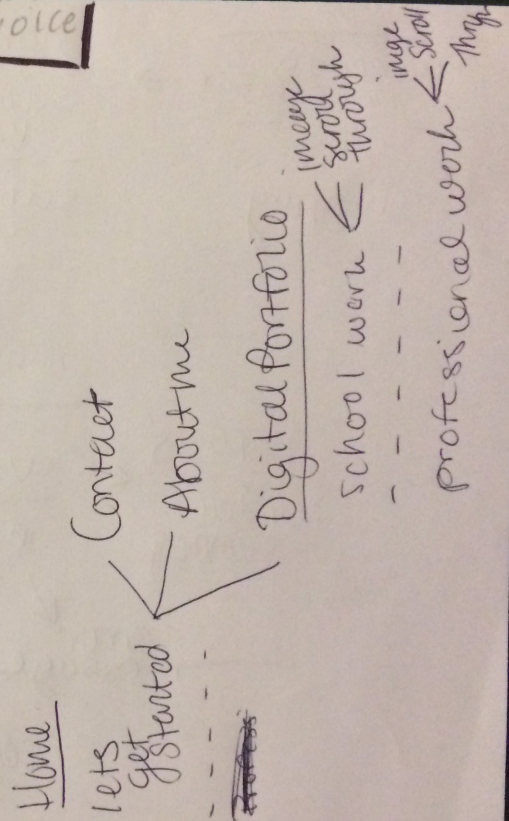 oice
Home
lets
get
started
Contact
About me
Digital Portfolio
school work
image
scroll
through
professional work
image
scroll